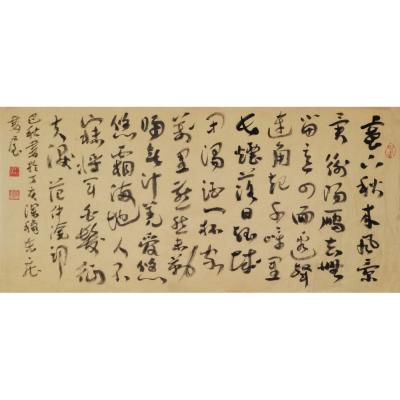 塞下秋来風景
異衡陽鴈去無
留意四面邊聲
連角起千嶂里
長煙落日孤城
闭濁酒一杯家
萬里燕然未勒
歸無計羌管悠
悠霜满地人不
寐將軍白髮征
夫淚 范仲淹詞